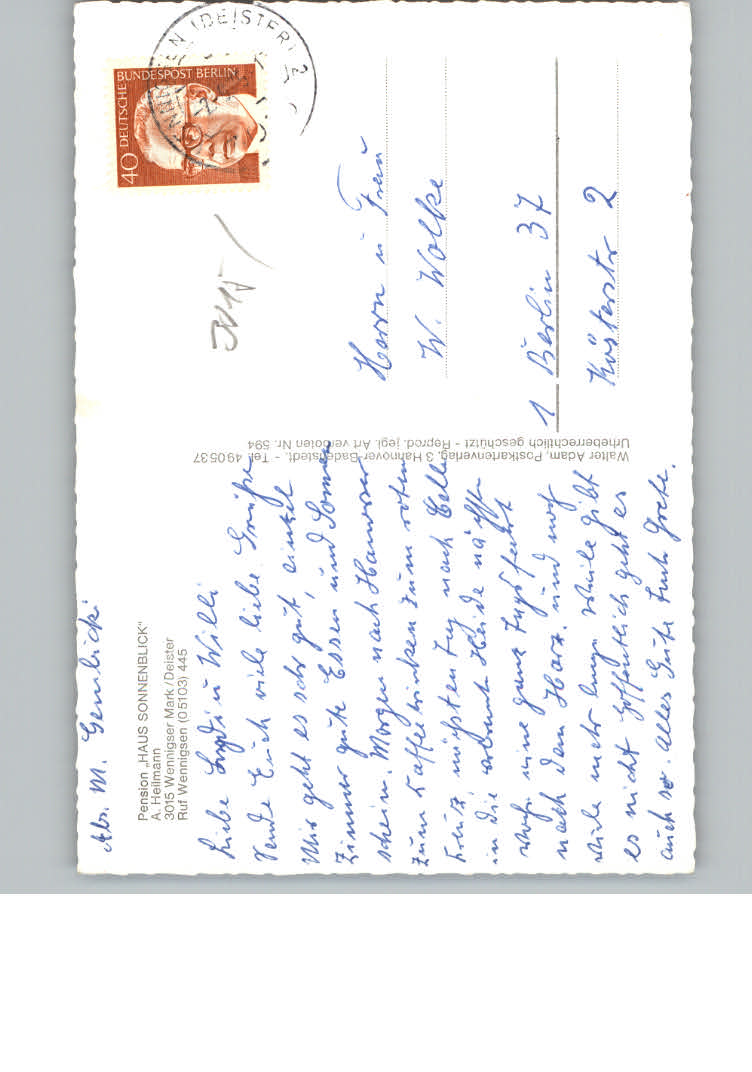 Abs. M.
Pension „HAUS SONNENBLICK"
A. Heilmann
3015 Wennigser Mark/Deister
Ruf Wennigsen (0 51 03) 445
Liebe u Willi
Sende Euch viele liebe Grüße
Mir geht es sehr gut, einzel
Zimmer gute Essen und Sonnen
schein. Morgen nach Hannover
zum Kaffee trinken zum roten
nächsten Tag nach Celle
in die Heide nächste
eine ganz Tags fahrt
nach dem Harz. und noch
viele mehr lange weile gibt
es nicht hoffentlich geht es
auch so. Alles Gute Euch Grete.
Walter Adam, Postkartenverlag, 3 Hannover-Badenstedt. - Tel. 490537
Urheberrechtlich geschützt - Reprod. jegl. Art verboten Nr. 594
DEUTSCHE BUNDESPOST BERLIN
40
(DEISTER) 2
3015
Herrn u Frau
W. Wolke
1 Berlin 37
Küsterstr 2